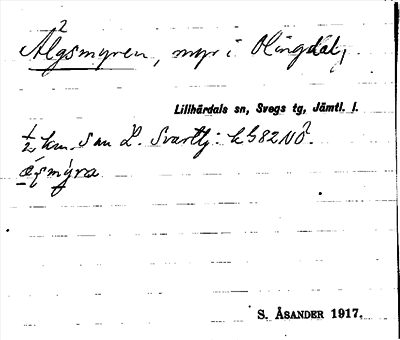 2
Älgsmyren, myr i Olingdal,
Lillhärdals sn, Svegs tg, Jämtl. l.
1/2 km. S om L. Svarttj: k G82NÖ.
S. ÅSANDER 1917.